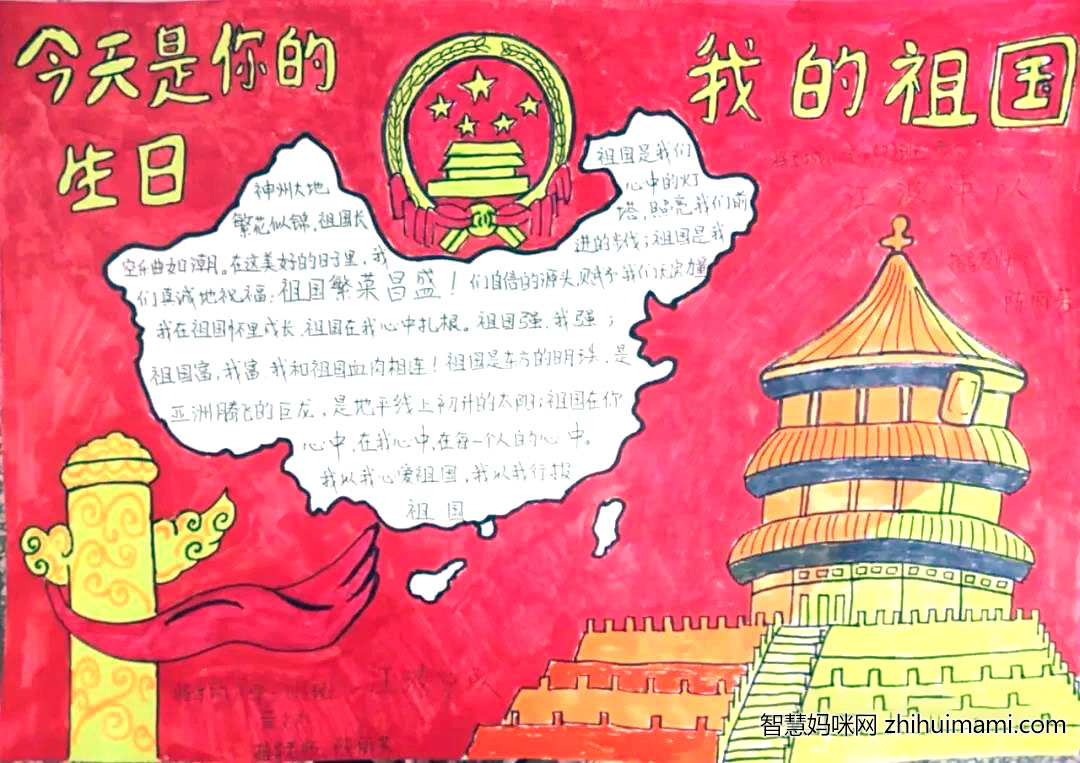 今天是你的
生日
我的祖国
神州大地
繁花似锦,祖国长
空乐曲如潮。在这美好的日子里,我
们真诚地祝福:祖国繁荣昌盛!
我在祖国怀里成长,祖国在我心中扎根。祖国强,我强;
祖国富,我富 我和祖国血肉相连!祖国是东方的明珠,是
亚洲腾飞的巨龙,是地平线上初升的太阳;祖国在你
心中,在我心中,在每一个人的心中。
我以我心爱祖国,我以我行报
祖国
祖国是我们
心中的灯
塔,照亮我们前
进的步伐;祖国是我
们自信的源头,赋予我们无穷力量
江波中队
江波中队
智慧妈咪网 zhihuimami.com